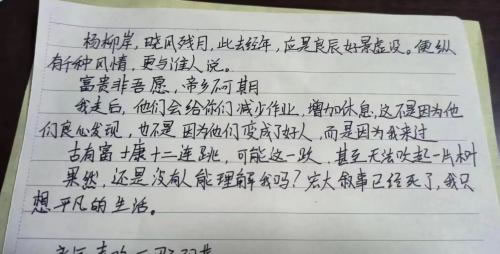 杨柳岸，晓风残月，此去经年，应是良辰好景虚设。便纵
有千种风情，更与谁人说。
富贵非吾愿，帝乡不可期
我走后，他们会给你们减少作业，增加休息，这不是因为他
们良心发现，也不是因为他们变成了好人，而是因为我来过
古有富士康十二连跳，可能这一跃，甚至无法吹起一片树
果然，还是没有人能理解我吗？宏大叙事已经死了，我只
想平凡的生活。